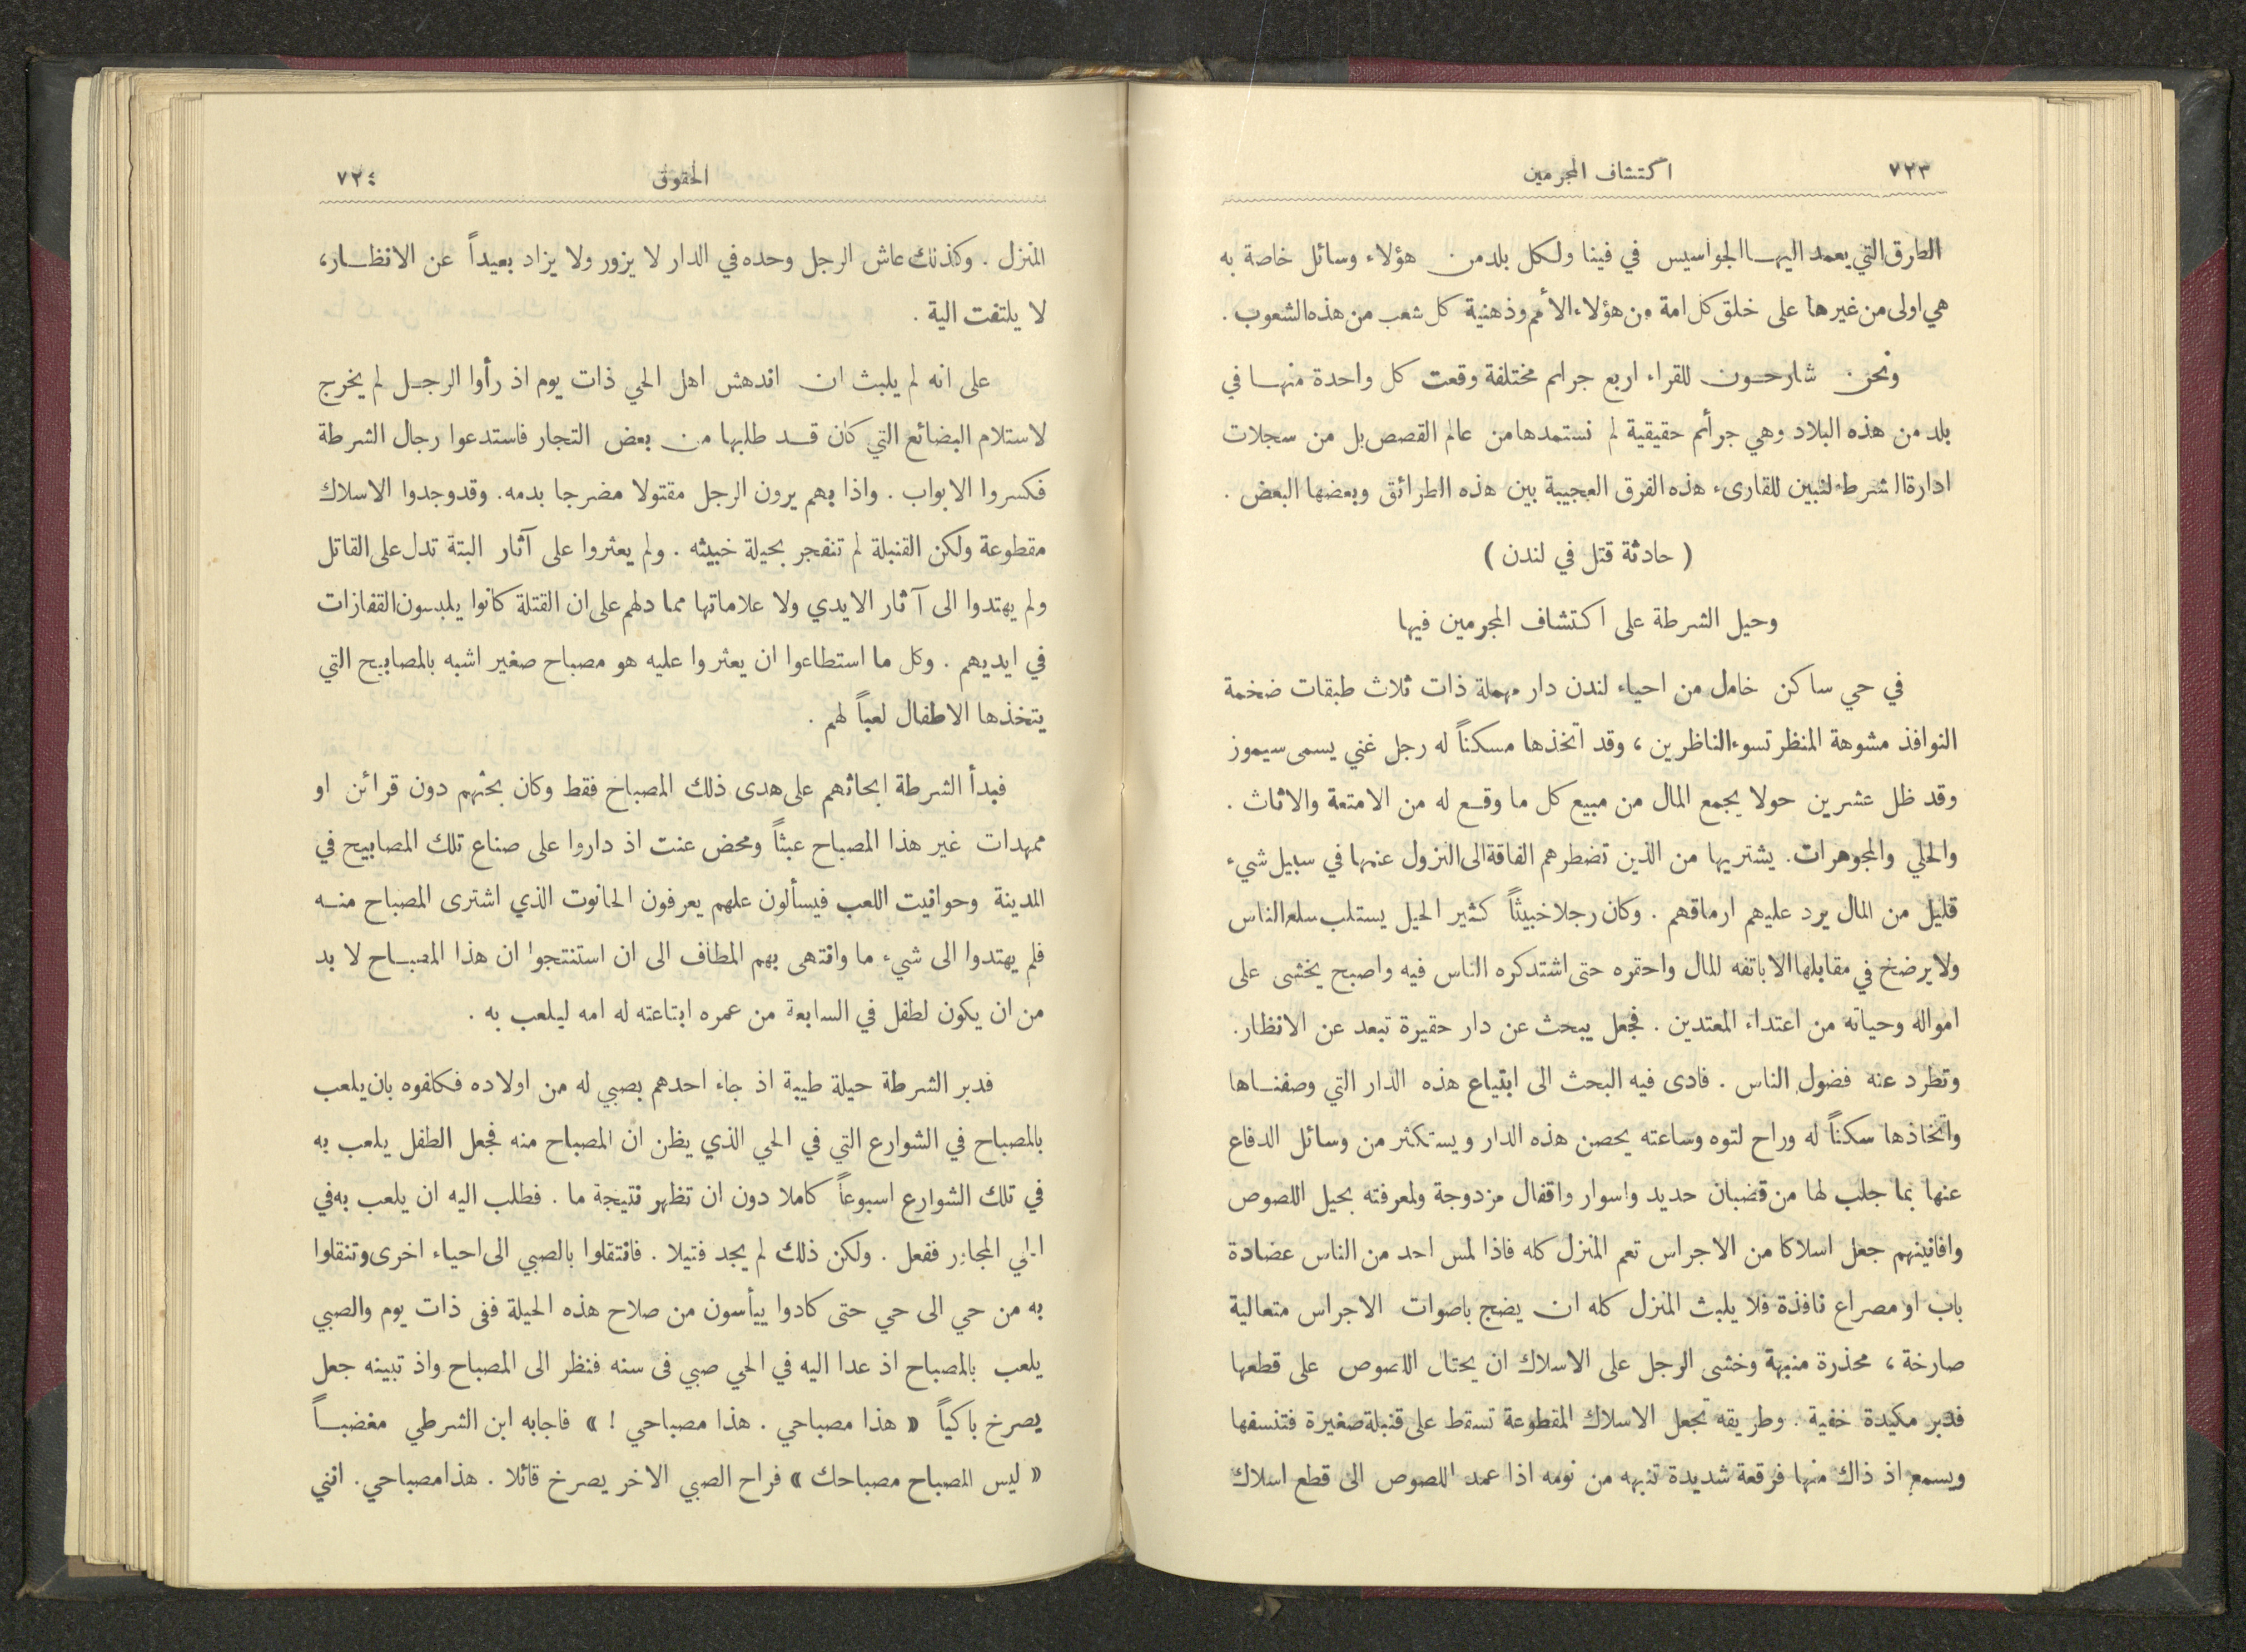 ٧٢٣
اكتشاف المجرمين
الطرق التي يعمد اليها الجواسيس في فينا ولكل بلد من هؤلاء وسائل خاصة به
هي اولى من غيرها على خلق كل امة من هؤلاء الأمم وذهنية كل شعب من هذه الشعوب .
ونحن شارحون للقراء اربع جرائم مختلفة وقعت كل واحدة منها في
بلد من هذه البلاد وهي جرأئم حقيقية لم نستمدها من عالم القصص بل من سجلات
ادارة الشرطة لنبين للقارىء هذه الفرق العجيبة بين هذه الطرائق وبعضها البعض .
( حادثة قتل في لندن )
وحيل الشرطة على اكتشاف المجرمين فيها
في حي ساكن خامل من احياء لندن دار مهملة ذات ثلاث طبقات ضخمة
النوافذ مشوهة المنظر تسوء الناظرين ، وقد اتخذها مسكناً له رجل غني يسمى سيموز
وقد ظل عشرين حولا يجمع المال من مبيع كل ما وقع له من الامتعة والاثاث .
والحلي والمجوهرات . يشتريها من الذين تضطرهم الفاقة الى النزول عنها في سبيل شيء
قليل من المال يرد عليهم ارماقهم . وكان رجلا خبيثاً كثير الحيل يستلب سلع الناس
ولا يرضخ في مقابلها الا باتفه المال واحقره حتى اشتد كره الناس فيه واصبح يخشى على
امواله وحياته من اعتداء المعتدين . فجعل يبحث عن دار حقيرة تبعد عن الانظار .
وتطرد عنه فضول الناس . فادى فيه البحث الى ابتياع هذه الدار التي وصفناها
واتخاذها سكناً له وراح لتوه وساعته يحصن هذه الدار ويستكثر من وسائل الدفاع
عنها بما جلب لها من قضبان حديد واسوار واقفال مزدوجة ولمعرفته بحيل اللصوص
وافانينهم جعل اسلاكا من الاجراس تعم المنزل كله فاذا لمس احد من الناس عضادة
باب او مصراع نافذة فلا يلبث المنزل كله ان يضج باصوات الاجراس متعالية
صارخة ، محذرة منبهة وخشى الرجل على الاسلاك ان يحتال اللصوص على قطعها
فدبر مكيدة خفية . وطريقه تجعل الاسلاك المقطوعة تسقط على قنبلة صغيرة فتنسفها
ويسمع اذ ذاك منها فرقعة شديدة تنبهه من نومه اذا عمد اللصوص الى قطع اسلاك
الحقوق
٧٢٤
المنزل . وكذلك عاش الرجل وحده في الدار لا يزور ولا يزاد بعيداً عن الانظار ،
لا يلتفت الية .
على انه لم يلبث ان اندهش اهل الحي ذات يوم اذ رأوا الرجل لم يخرج
لاستلام البضائع التي كان قد طلبها من بعض التجار فاستدعوا رجال الشرطة
فكسروا الابواب . واذا بهم يرون الرجل مقتولا مضرجا بدمه . وقد وجدوا الاسلاك
مقطوعة ولكن القنبلة لم تنفجر بحيلة خبيثه . ولم يعثروا على آثار البتة تدل على القاتل
ولم يهتدوا الى آثار الايدي ولا علاماتها مما دلهم على ان القتلة كانوا يلبسون القفازات
في ايديهم . وكل ما استطاعوا ان يعثروا عليه هو مصباح صغير اشبه بالمصابيح التي
يتخذها الاطفال لعباً لهم .
فبدأ الشرطة ابحاثهم على هدى ذلك المصباح فقط وكان بحثهم دون قرائن او
ممهدات غير هذا المصباح عبثاً ومحض عنت اذ داروا على صناع تلك المصابيح في
المدينة وحوانيت اللعب فيسألون علهم يعرفون الحانوت الذي اشترى المصباح منه
فلم يهتدوا الى شيء ما وانتهى بهم المطاف الى ان استنتجوا ان هذا المصباح لا بد
من ان يكون لطفل في السابعة من عمره ابتاعته له امه ليلعب به .
فدبر الشرطة حيلة طيبة اذ جاء احدهم بصبي له من اولاده فكلفوه بان يلعب
بالمصباح في الشوارع التي في الحي الذي يظن ان المصباح منه فجعل الطفل يلعب به
في تلك الشوارع اسبوعاً كاملا دون ان تظهر نتيجة ما . فطلب اليه ان يلعب به في
الحي المجاور ففعل . ولكن ذلك لم يجد فتيلا . فانتقلوا بالصبي الى احياء اخرى وتنقلوا
به من حي الى حي حتى كادوا ييأسون من صلاح هذه الحيلة ففى ذات يوم والصبي
يلعب بالمصباح اذ عدا اليه في الحي صبي فى سنه فنظر الى المصباح واذ تبينه جعل
يصرخ باكياً « هذا مصباحي . هذا مصباحي ! » فاجابه ابن الشرطي مغضباً
« ليس المصباح مصباحك » فراح الصبي الاخر يصرخ قائلا . هذا مصباحي . انني